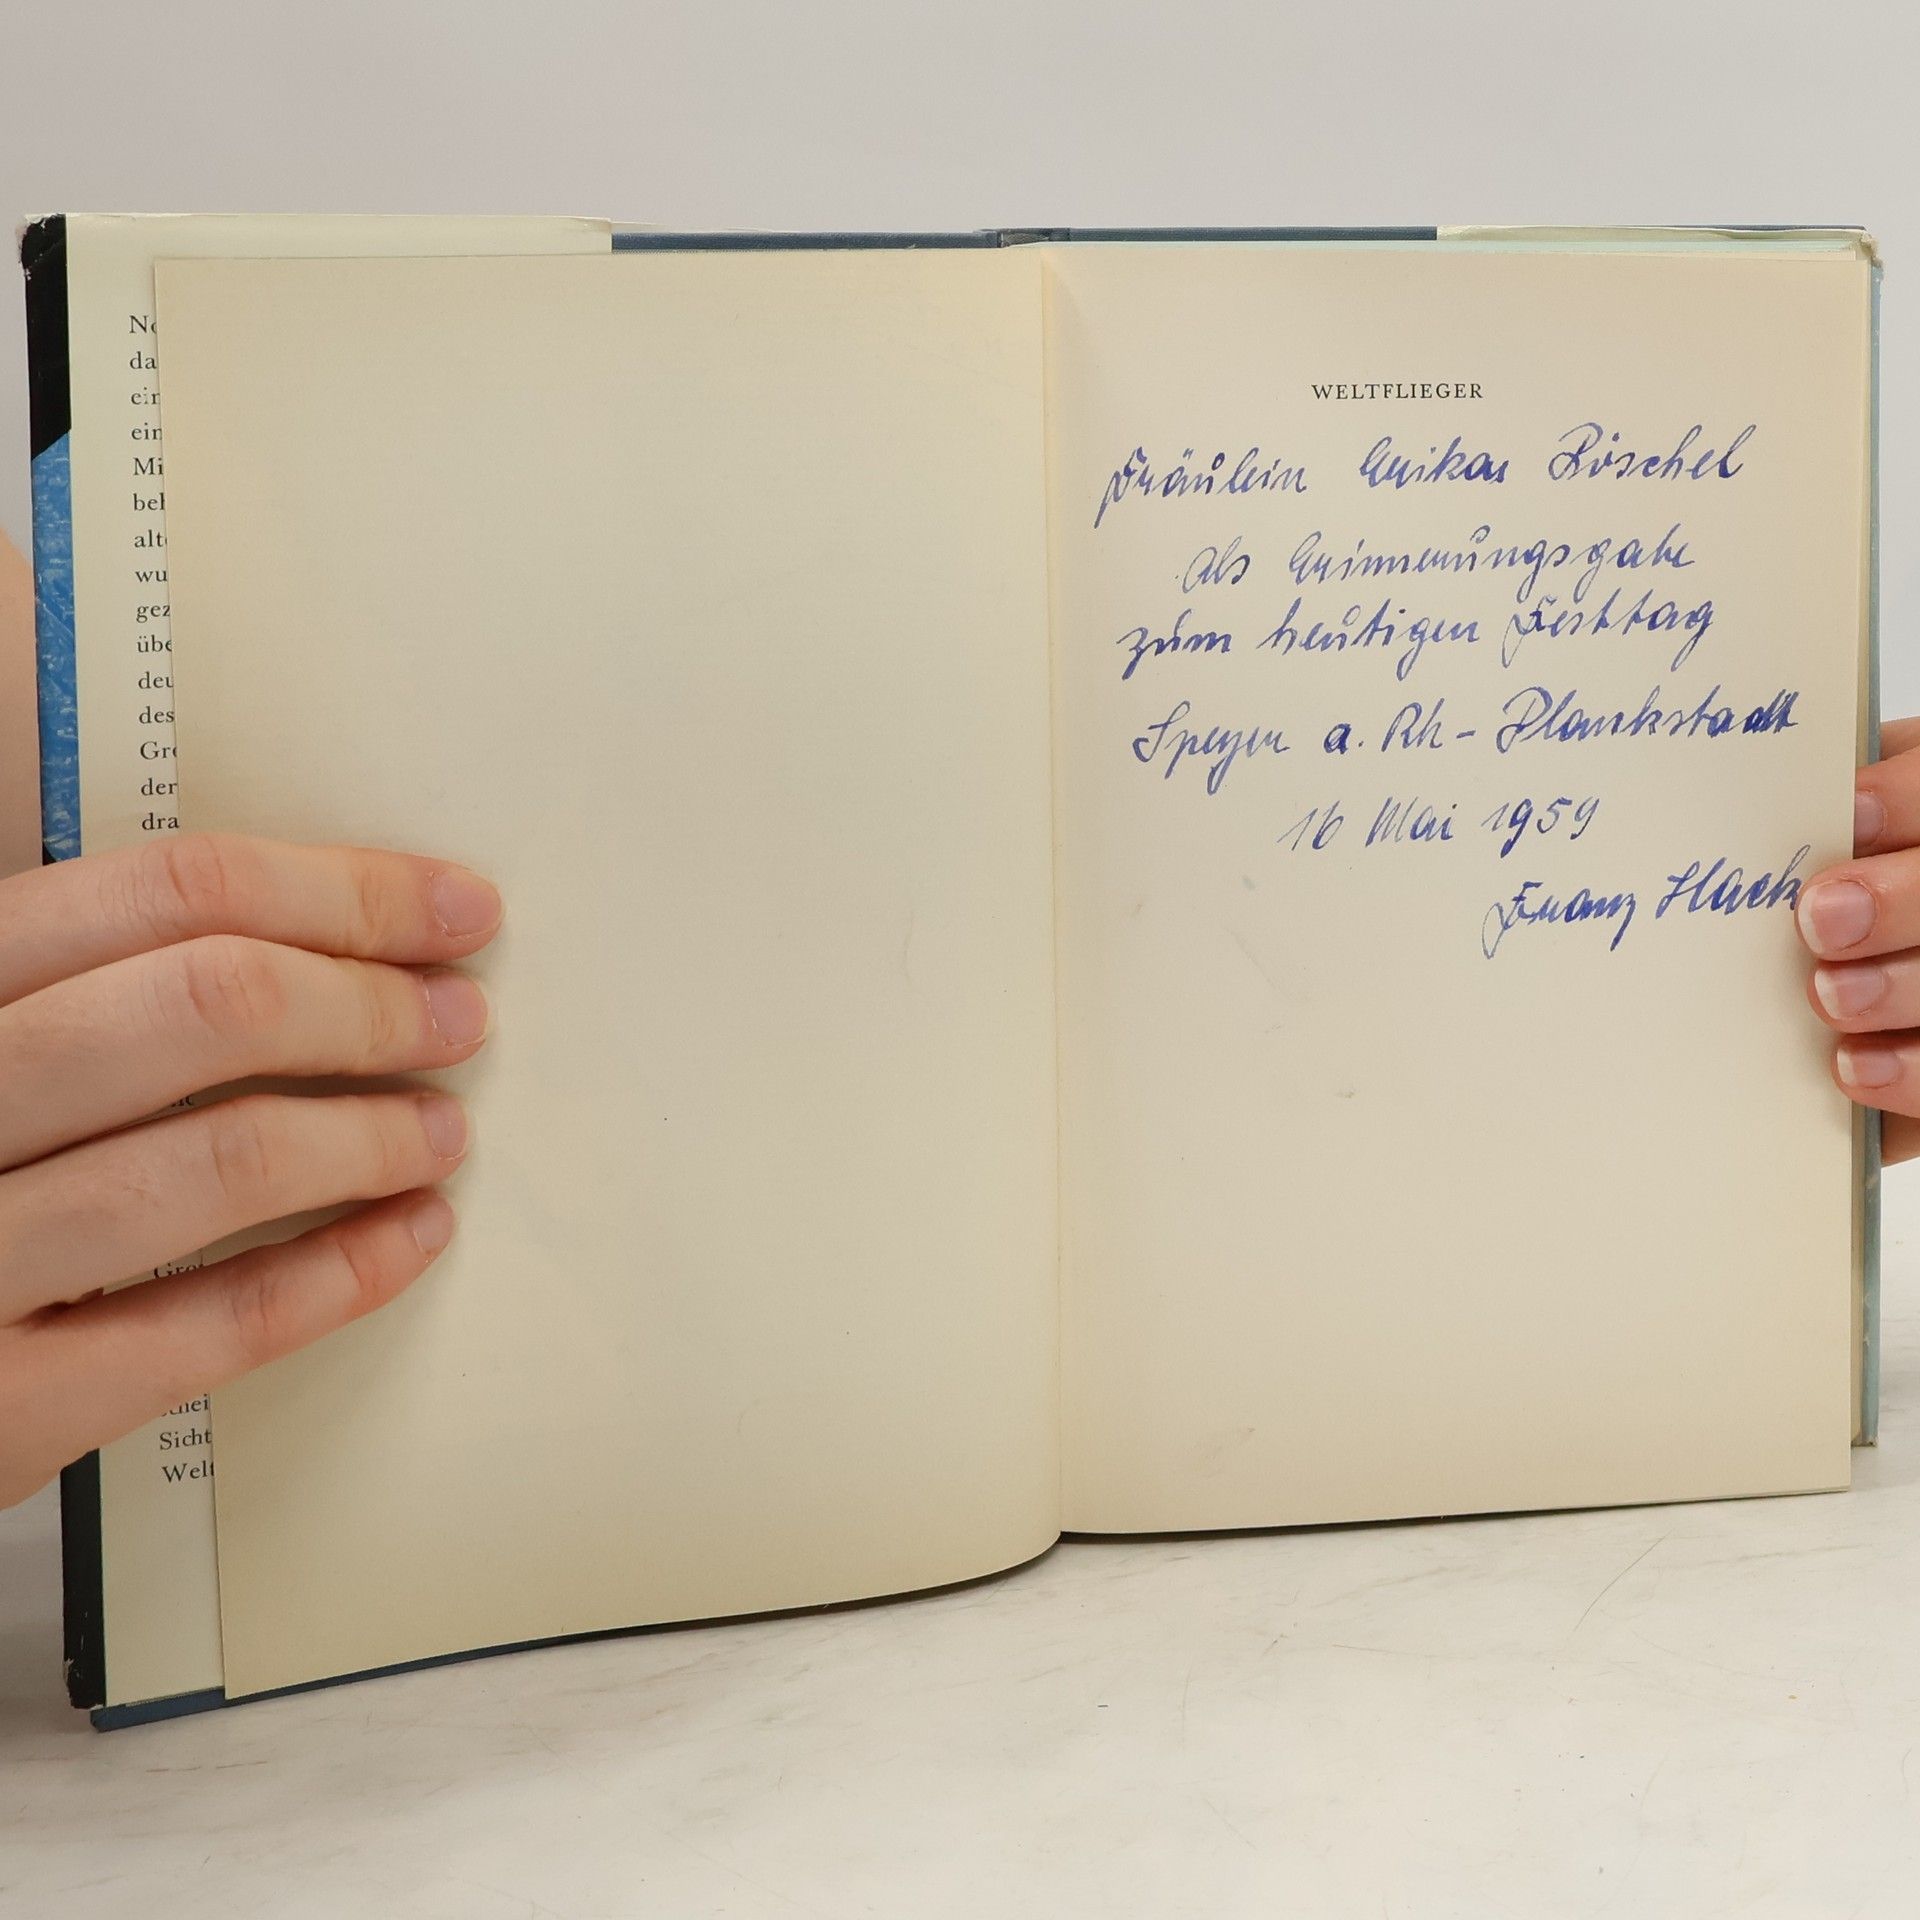 No
da
ein
ein
Mi
beh
alte
wu
gez
übe
deu
des
Gro
der
dra
Gro
chei
Sicht
Welt
WELTFLIEGER
Fräulein Erika Röschel
Als Erinnerungsgabe
zum heutigen Festtag
Speyer a. Rh - Plankstadt
16 Mai 1959
Franz Hack